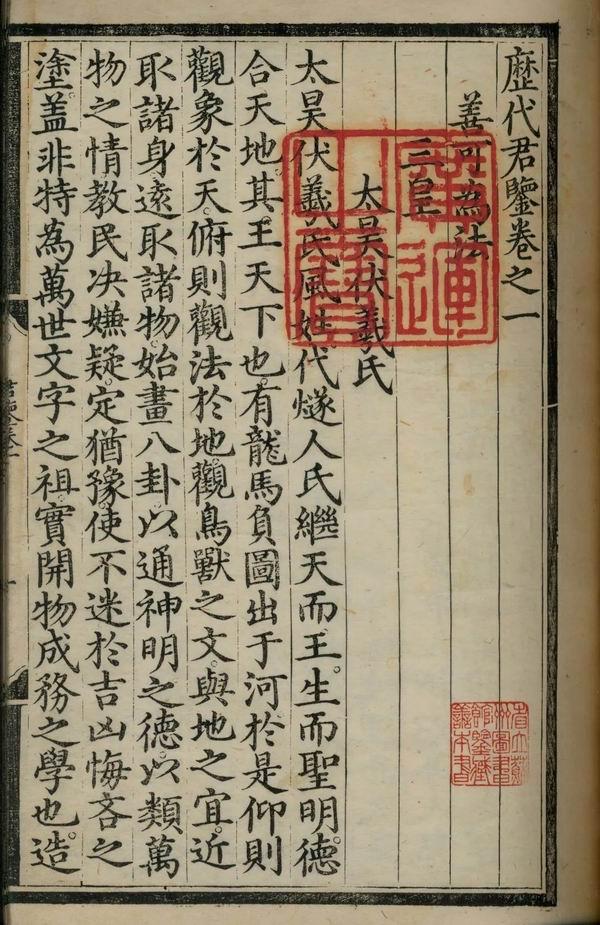 歷代君鑒卷之一
善可為法
三皇
太昊伏羲氏
太昊伏羲氏風姓代燧人氏繼天而王。生而聖明。德
合天地。其王天下也。有龍馬負圖出于河於是仰則
觀象於天。俯則觀法於地。觀鳥獸之文。與地之宜。近
取諸身遠取諸物。始畫八卦。以通神明之德。以類萬
物之情教民决嫌疑。定猶豫。使不迷於吉凶悔吝之
塗。盖非特為萬世文字之祖。實開物成務之學也。造
廣運
之寶
省立蘇
州圖書
館鑒藏
善本書